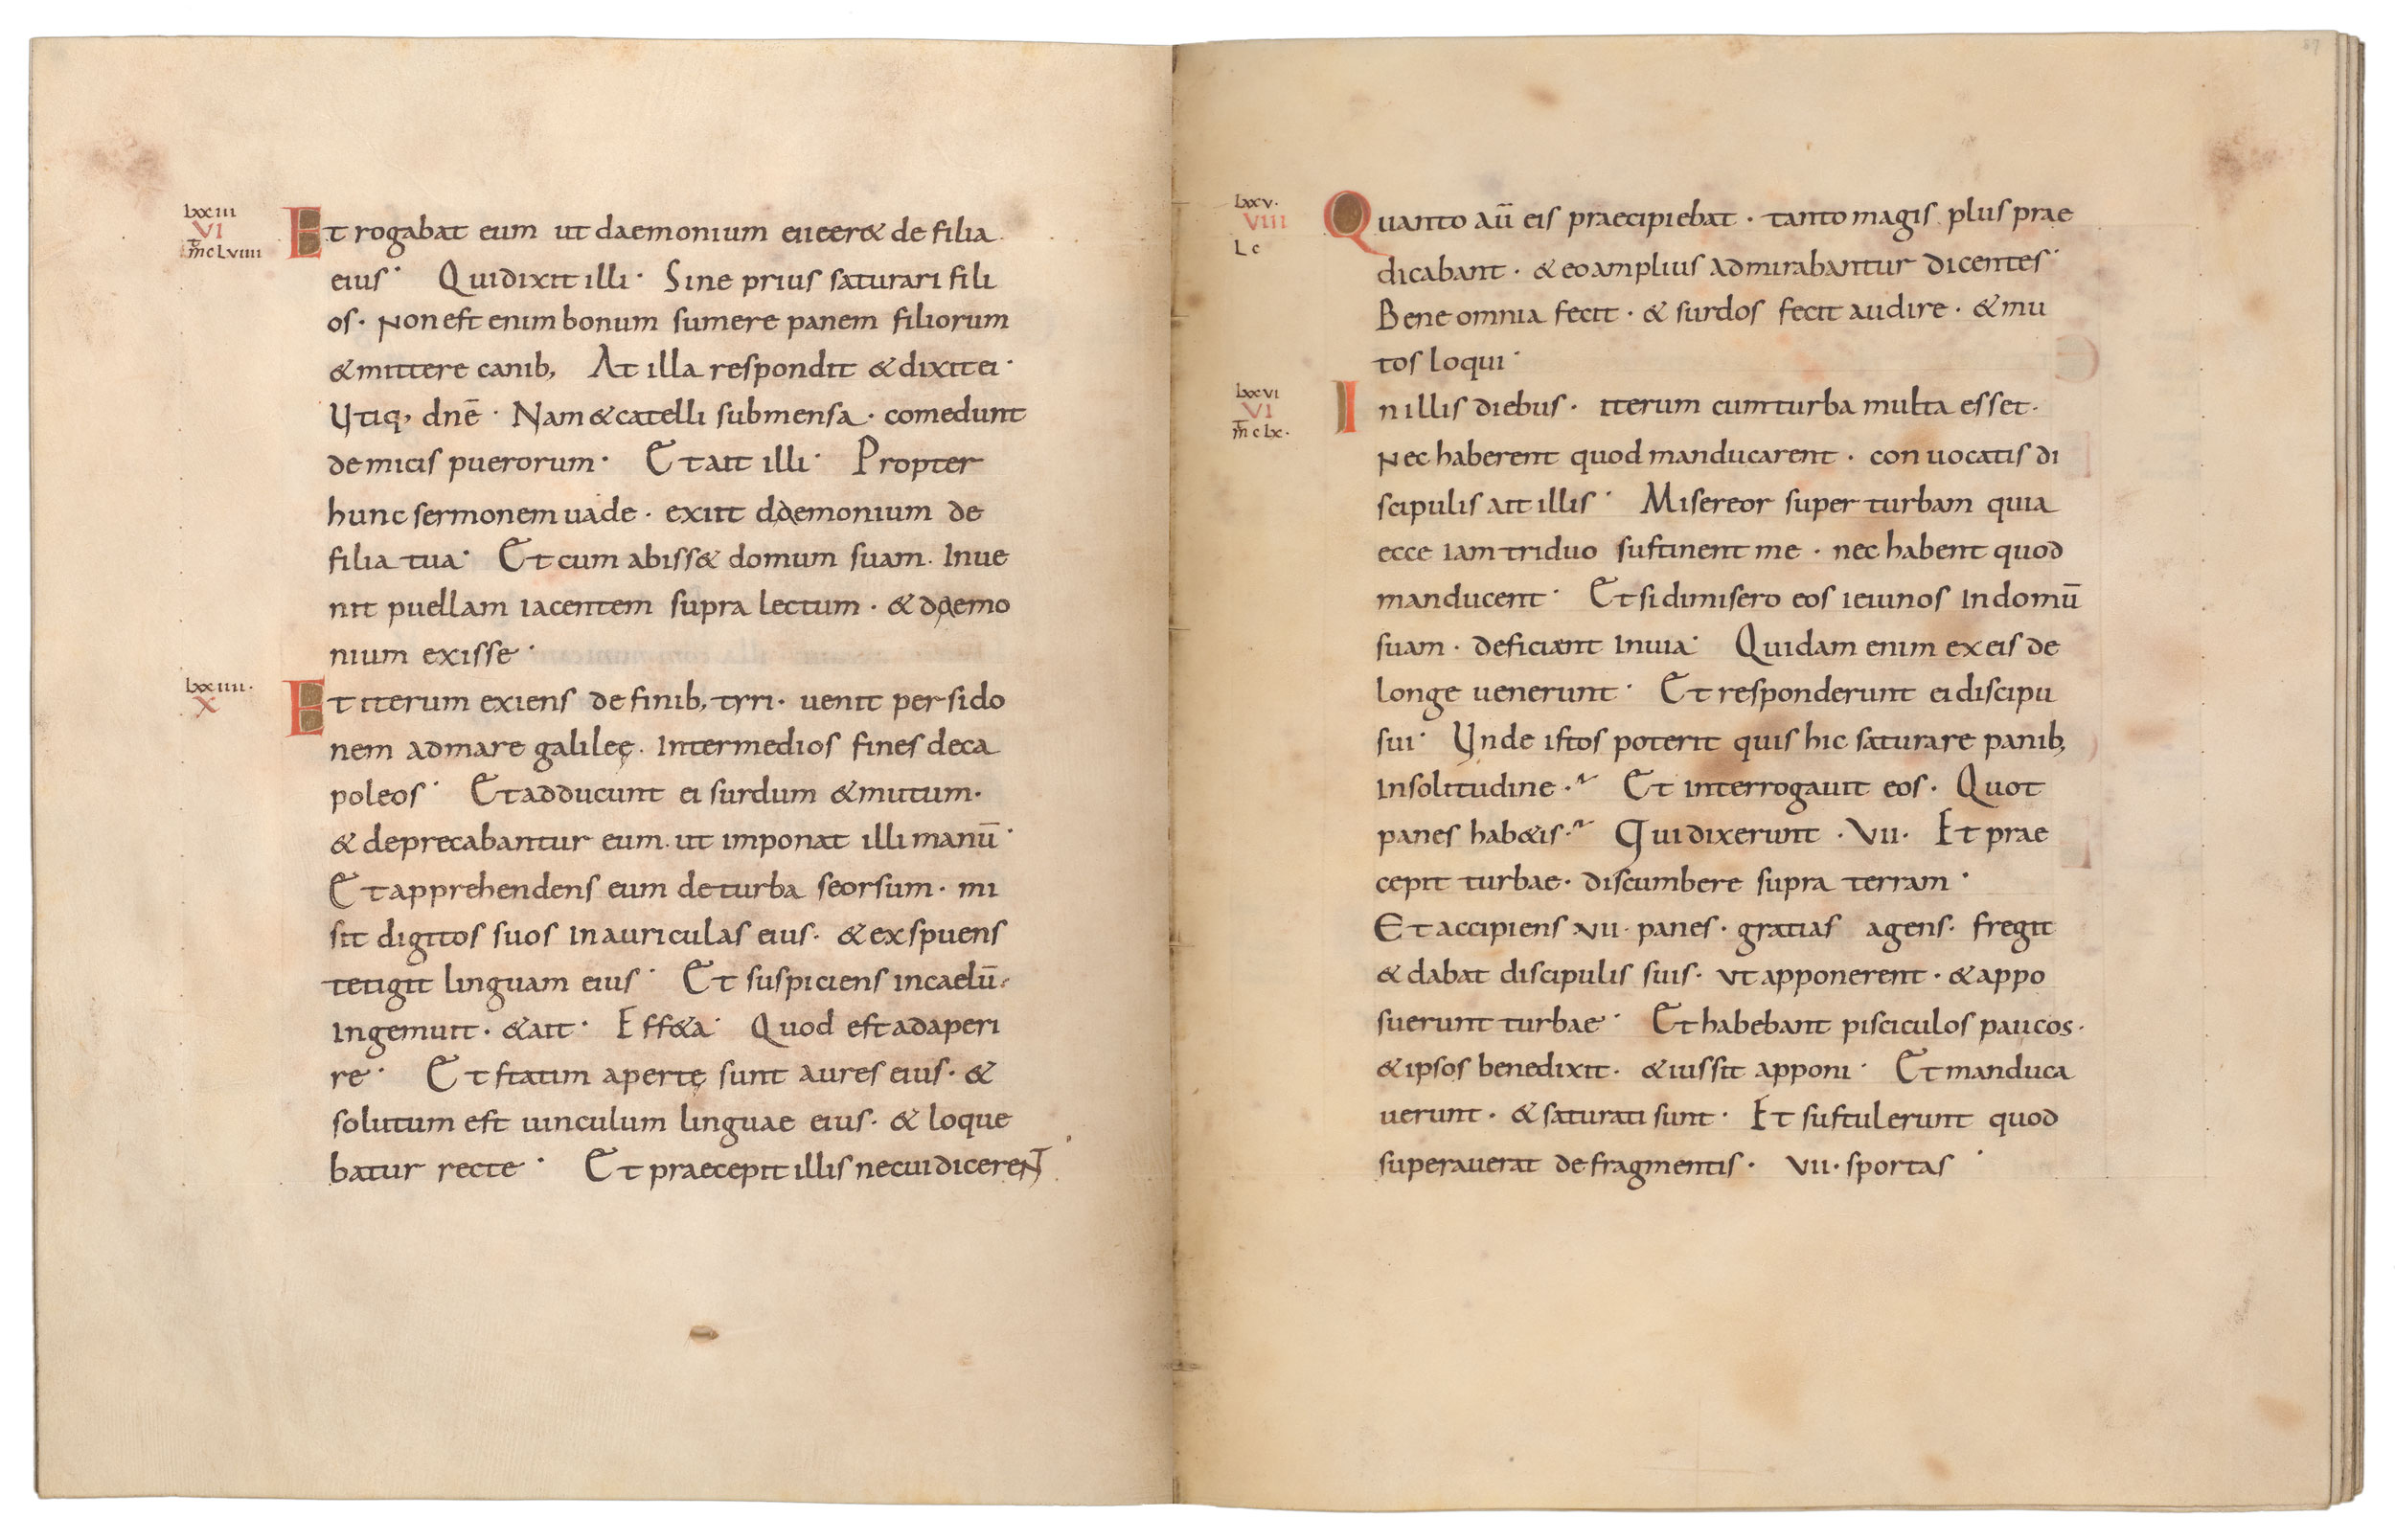 lxxiii
VI
m̄ c Lviiii
Et rogabat eum ut daemonium eiicer& de filia
eius· Qui dixit illi· Sine prius saturari fili
os· Non est enim bonum sumere panem filiorum
& mittere canib; At illa respondit & dixit ei·
Utiq; dnē· Nam & catelli sub mensa· comedunt
de micis puerorum· Et ait illi· Propter
hunc sermonem uade· exiit daemonium de
filia tua· Et cum abiss& domum suam. Inue
nit puellam iacentem supra lectum· & daemo
nium exisse·
lxxiiii·
X
Et iterum exiens de finib; tyri· uenit per sido
nem ad mare galileę. Inter medios fines deca
poleos· Et adducunt ei surdum & mutum·
& deprecabantur eum. ut imponat illi manū·
Et apprehendens eum de turba seorsum· mi
sit digitos suos in auriculas eius· & exspuens
tetigit linguam eius· Et suspiciens in caelū·
Ingemuit· & ait· Eff&a· Quod est adaperi
re· Et statim apertę sunt aures eius· &
solutum est uinculum linguae eius· & loque
batur recte· Et praecepit illis ne cui dicerent·
87
lxxv·
VIII
L c
Quanto aū eis praecipiebat· tanto magis plus prae
dicabant· & eo amplius admirabantur dicentes·
Bene omnia fecit· & surdos fecit audire· & mu
tos loqui·
lxxvi
VI
m̄ c lx·
In illis diebus· iterum cum turba multa esset·
Nec haberent quod manducarent· conuocatis di
scipulis ait illis· Misereor super turbam quia
ecce iam triduo sustinent me· nec habent quod
manducent· Et si dimisero eos ieiunos in domū
suam· deficiant in uia· Quidam enim ex eis de
longe uenerunt· Et responderunt ei discipu
sui· Unde istos poterit quis hic saturare panib;
In solitudine·? Et interrogauit eos· Quot
panes hab&is·? Qui dixerunt· VII· Et prae
cepit turbae· discumbere supra terram·
Et accipiens VII· panes· gratias agens· fregit
& dabat discipulis suis· ut apponerent· & appo
suerunt turbae· Et habebant pisciculos paucos·
& ipsos benedixit· & iussit apponi· Et manduca
uerunt· & saturati sunt· Et sustulerunt quod
superauerat de fragmentis· VII· sportas·